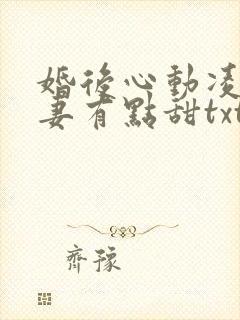 婚後心動凌
妻有點甜txt
齊豫